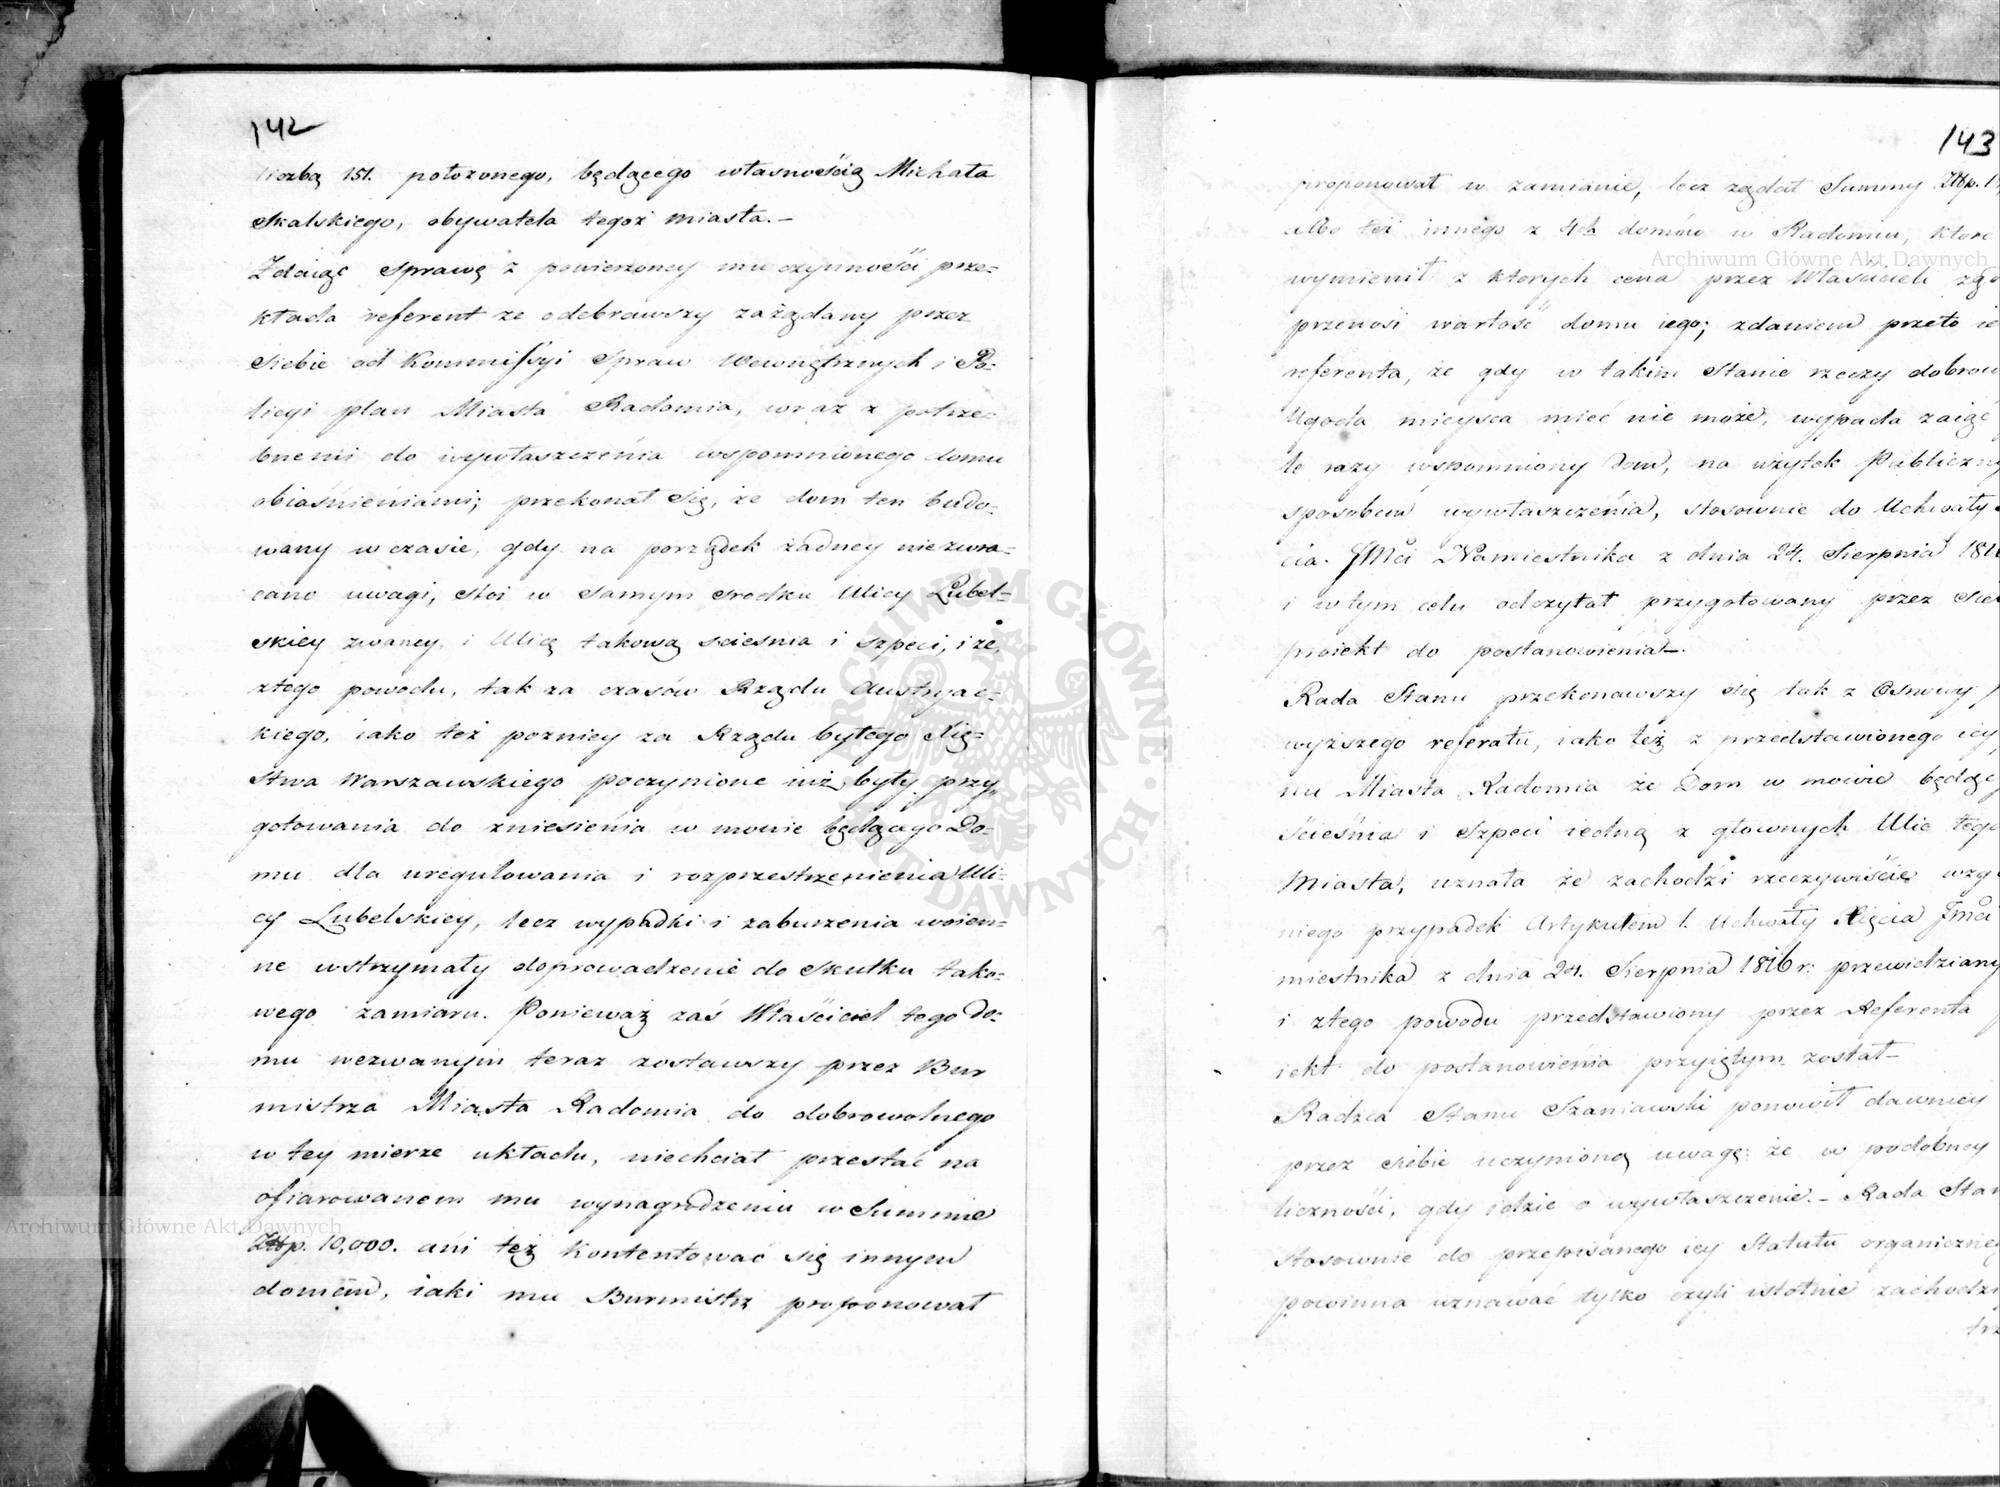 142
liczbą 151. położonego, będącego własnością Michała
Skalskiego, obywatela tegoż miasta. –
Zdaiąc sprawę z powierzoney mu czynności prze-
kłada referent że odebrawszy zażądany przez
siebie od Kommissyi Spraw Wewnętrznych i Po-
licyi plan Miasta Radomia, wraz z potrze-
bnemi do wywłaszczenia wspomnionego domu
obiaśnieniami; przekonał się, że dom ten budo-
wany w czasie, gdy na porządek żadney niezwra-
cano uwagi, stoi w samym srodku Ulicy Lubel-
skiey zwaney, i Ulicę takową sciesnia i szpeci, i że
ztego powodu, tak za czasów Rządu Austryac-
kiego, iako też pozniey za Rządu byłego Xię-
stwa Warszawskiego poczynione iuż były przy-
gotowania do zniesienia w mowie będącego Do-
mu dla uregulowania i rozprzestrzenienia Uli-
cy Lubelskiey, lecz wypadki i zaburzenia woien-
ne wstrzymały doprowadzenie do skutku tako-
wego zamiaru. Ponieważ zaś Właściciel tego Do-
mu wezwanym teraz zostawszy przez Bur
mistrza Miasta Radomia do dobrowolnego
w tey mierze układu, niechciał przestać na
ofiarowanem mu wynagrodzeniu w Summie
Złłp. 10,000. ani też kontentować się innym
domem, iaki mu Burmistrz proponował
143
proponował w zamianie, lecz żądał Summy Złłp.
albo też innego z 4ch domów w Radomiu, ktore
wymienił z ktorych cena przez Właścicieli
przenosi wartość domu iego; zdaniem przeto
referenta, że gdy w takim stanie rzeczy
Ugoda mieysca mieć nie może, wypada zaiąć
te razy wspomniony Dom, na użytek
sposobem wywłaszczenia, stosownie do Uchwały
cia JMci Namiestnika z dnia 24. Sierpnia
i w tym celu odczytał przygotowany przez
proiekt do postanowienia –.
Rada Stanu przekonawszy się tak z Osnowy
wyższego referatu, iako też z przedstawionego iey
nu Miasta Radomia że Dom w mowie
ścieśnia i Szpeci iedną z głownych Ulic tego
Miasta, uznała że zachodzi rzeczywiście
niego przypadek Artykułem 1. Uchwały Xięcia JMci
miestnika z dnia 24. Sierpnia 1816 r: przewidziany
i ztego powodu przedstawiony przez Referenta
iekt do postanowienia przyiętym został –
Radzca Stanu Szaniawski ponowił dawniey
przez siebie uczynioną uwagę: że w podobney
liczności, gdy idzie o wywłaszczenie. – Rada
stosownie do przepisanego iey Statutu
powinna uznawać tylko czyli istotnie
Archiwum Główne Akt Dawnych
Archiwum Główne Akt Dawnych
ARCHIWUM GŁÓWNE · AKT DAWNYCH ·